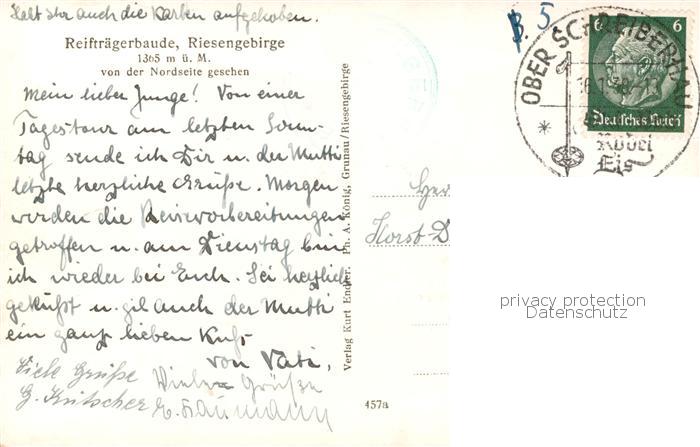 Habt Ihr auch die Karten aufgehoben.
Reifträgerbaude, Riesengebirge
1365 m ü. M.
von der Nordseite gesehen
Mein lieber Junge! Von einer
Tagestour am letzten Sonn-
tag sende ich Dir u. der Mutti
letzte herzliche Grüße. Morgen
werden die Reisevorbereitungen
getroffen u. am Dienstag bin
ich wieder bei Euch. Sei herzlich
geküßt u. gib auch der Mutti
ein ganz lieben Kuß
von Vati.
Viele Grüße
G. Kutscher
Viele Grüße
E. Naumann
Verlag Kurt Endler, Ph. A. König, Grunau/Riesengebirge
457a
B. 5.
OBER SCHREIBERHAU
6 6
Deutsches Reich
Rodel
Eis
Her
Horst D
privacy protection
Datenschutz